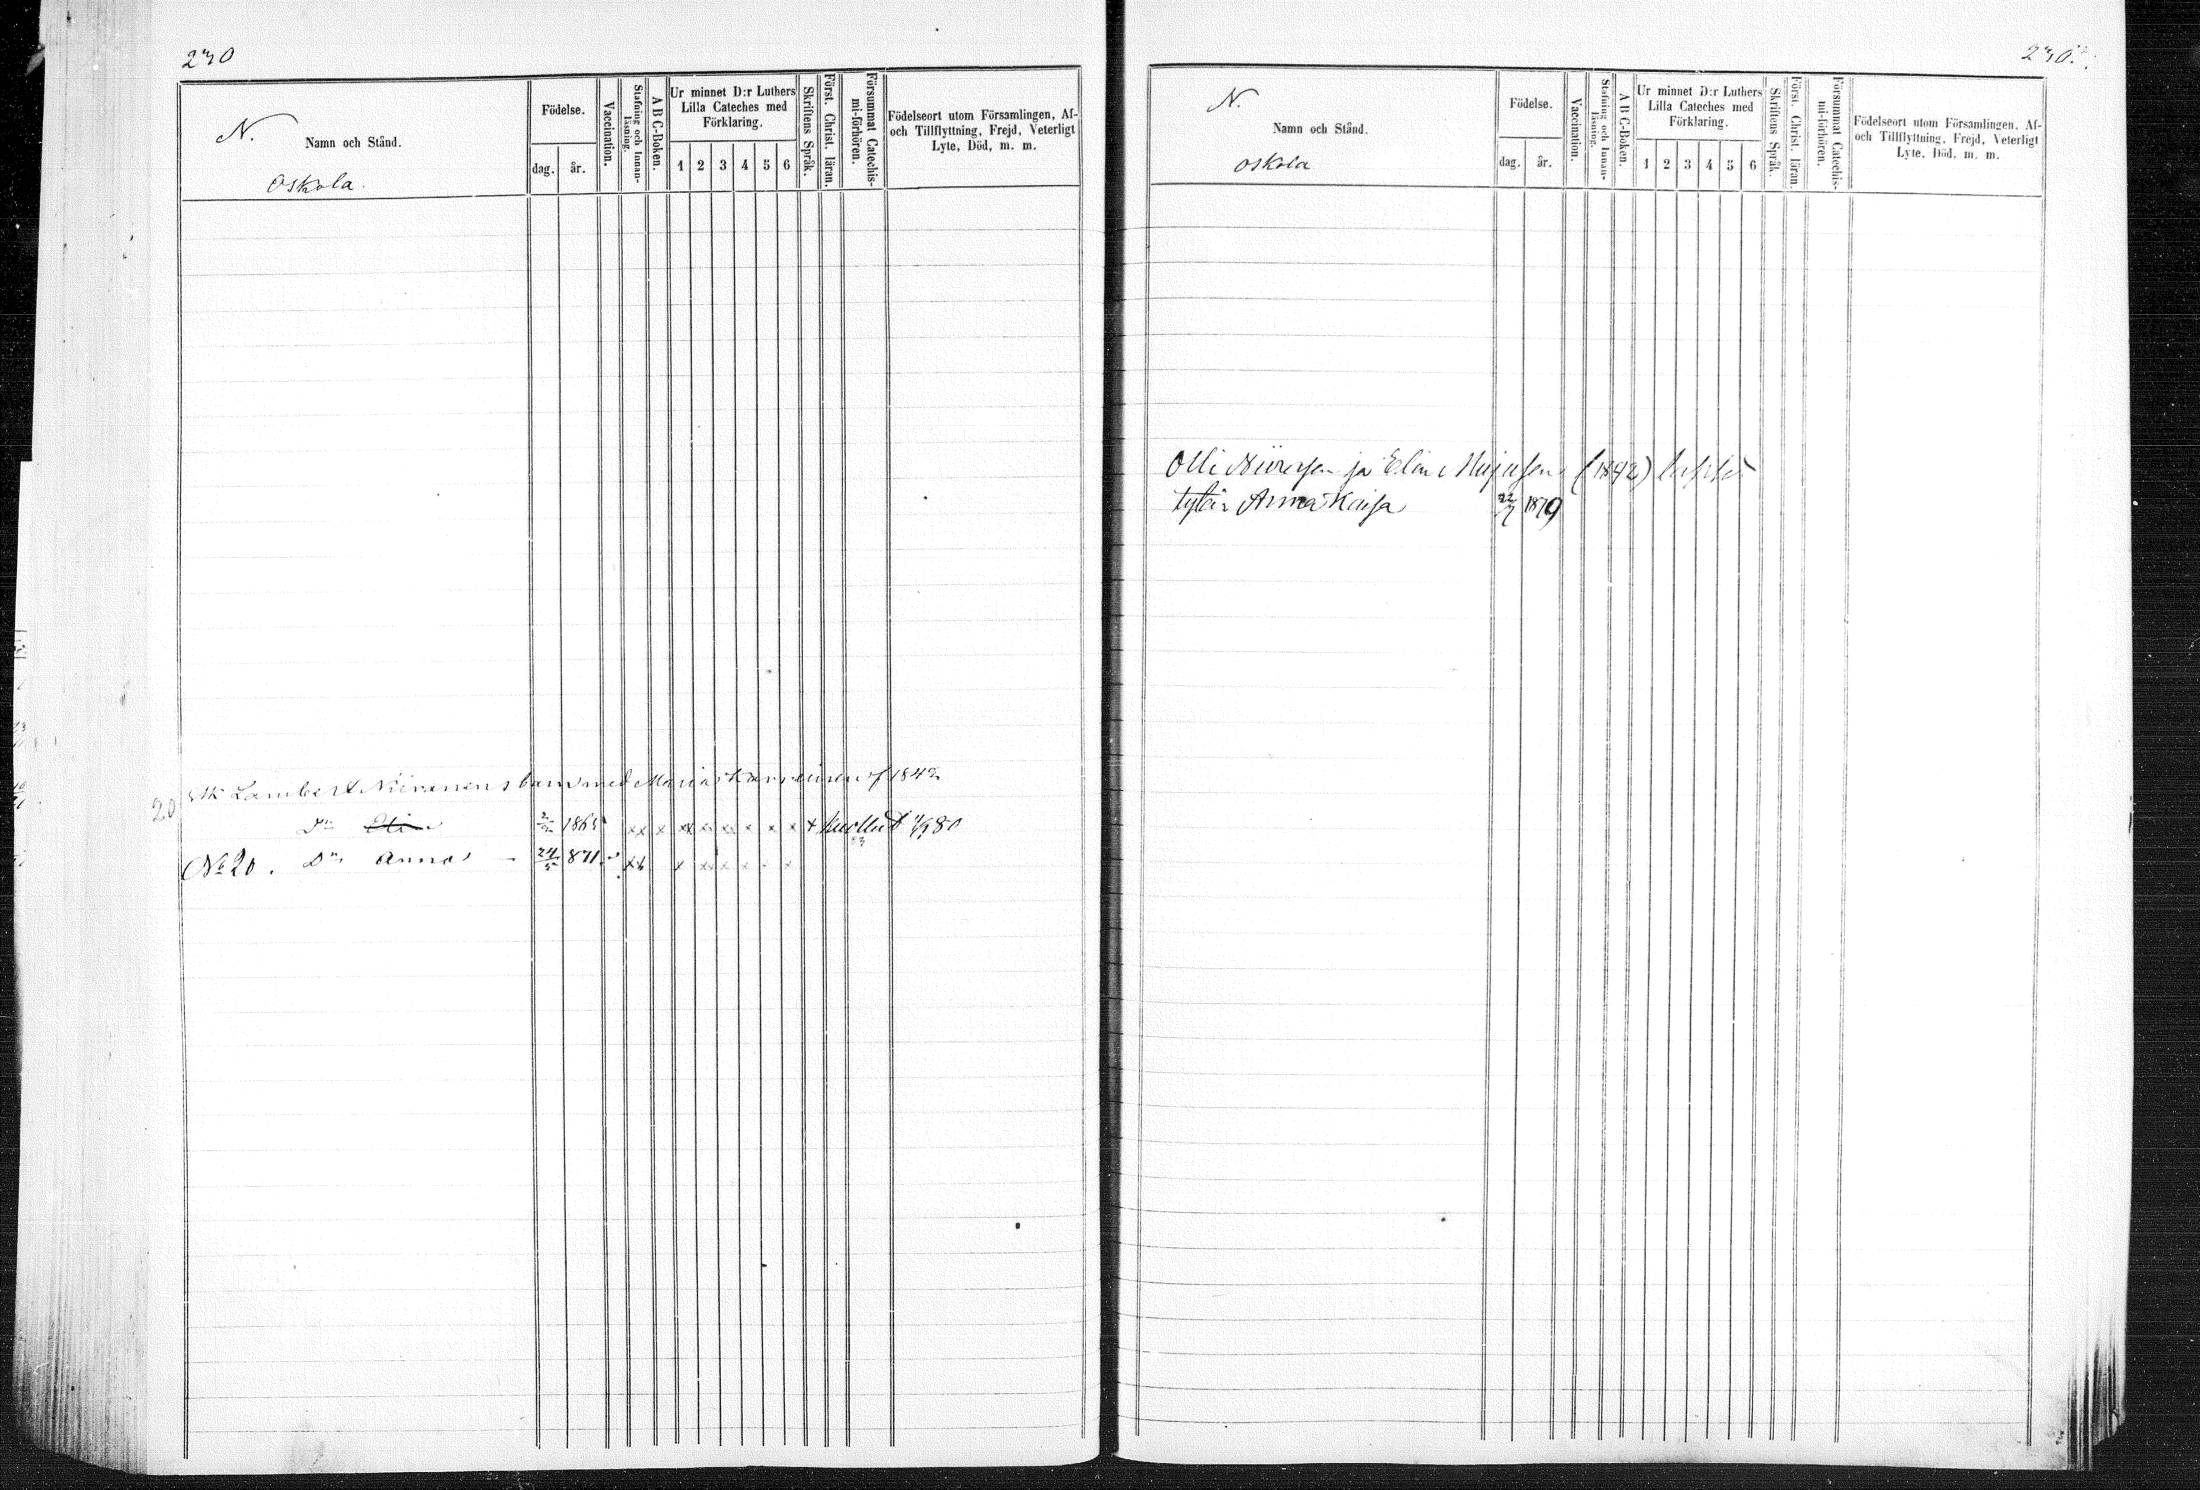 230
N.
Namn och Stånd.
Oskola.
Födelse.
dag.
år.
Vaccination.
Stafning och Innan-
läsning.
A B C-Boken.
Ur minnet D:r Luthers
Lilla Cateches med
Förklaring.
1 2 3 4 5 6
Skriftens Språk.
Först. Christ. läran.
Försummat Catechis-
mi-förhören.
Födelseort utom Församlingen, Af-
och Tillflyttning, Frejd, Veterligt
Lyte, Död, m. m.
Lambert Niiranens barn med Maria 1842
20
Dr Eli 1865 xx x xx xx xx x x x + kuollut 80
No 20. Dr Anna 24/5 871 xx x xx x x x
230
N.
Namn och Stånd.
Oskola
Födelse.
dag.
år.
Vaccination.
Stafning och Innan-
läsning.
A B C-Boken.
Ur minnet D:r Luthers
Lilla Cateches med
Förklaring.
1 2 3 4 5 6
Skriftens Språk.
Först. Christ. läran.
Försummat Catechis-
mi-förhören.
Födelseort utom Församlingen, Af-
och Tillflyttning, Frejd, Veterligt
Lyte, Död, m. m.
Olli Niirasen ja Elin Mujusen (1842)
tytär Anna Kaisa 22/7 1879